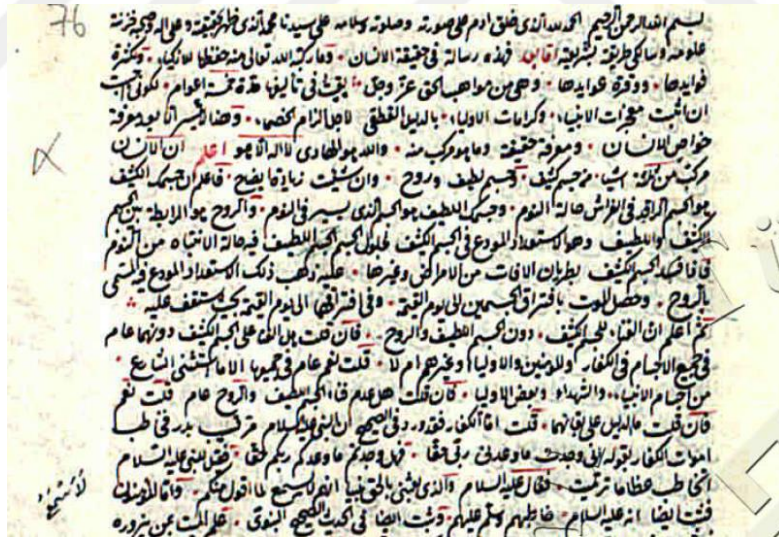 76
بسم الله الرحمن الرحيم الحمد لله الذي خلق ادم على صورته وصلوته وسلامه على سيدنا محمد الذي وعلى اله وصحبه خزنة
علومه وسالكي طريقة شريعته اما بعد فهذه رسالة في حقيقة الانسان وكثرة
فوايدها ووفرة عوايدها وهي من مواهب الحق عز وجل بقيت في تأليفها مدة خمسة اعوام لكوني
ان اثبت معجزات الانبياء وكرامات الاولياء بالدليل القطعي لاجل الزام الخصماء وهذا لا يتيسر الا بعد معرفة
خواص الانسان ومعرفة حقيقته وما هو مركب منه والله هو الهادي لا اله الا هو اعلم ان الانسان
مركب من ثلاثة اشياء من جسم كثيف وجسم لطيف وروح وان شئت زيادة ايضاح فاعلم ان جسمك الكثيف
هو الجسم الراقد في الفراش حالة النوم وجسمك اللطيف هو الجسم الذي يسير في النوم والروح هو الرابطة بين الجسم
الكثيف واللطيف وهو الاستعداد المودع في الجسم الكثيف لحلول الجسم اللطيف فيه حالة الانتباه من النوم
فاذا فسد الجسم الكثيف بطريان الافات من الامراض وغيرها عليه ذهب ذلك الاستعداد المودع فيه المسمى
بالروح وحصل الموت بافتراق الجسمين الى يوم القيمة وفي افتراقهما الى يوم القيمة بحث ستقف عليه
ثم اعلم ان الفناء للجسم الكثيف دون الجسم اللطيف والروح فان قلت هل الفناء على الجسم الكثيف دونهما عام
في جميع الاجسام في الكفار والمؤمنين والاولياء وغيرهم ام لا قلت نعم عام في جميعها الا ما استثنى الشارع
من اجسام الانبياء والشهداء وبعض الاولياء فان قلت هل عدم فناء الجسم اللطيف والروح عام قلت نعم
فان قلت ما الدليل على بقائهما قلت اما الكفار فقد ورد في الصحيح ان النبي عليه السلام بدر في طب
اموات الكفار لقوله اني وجدت ما وعدني ربي حقا فهل وجدتم ما وعدكم ربكم حقا فقيل للنبي عليه السلام
اتخاطب عظاما فقال عليه السلام والذي بعثني بالحق نبيا انهم لاسمع لما اقول منكم واما المؤمنون
فثبت ايضا انه عليه السلام خاطبهم وسلم عليهم وثبت ايضا في الحديث الصحيح النبوي علم الميت بمن يزوره